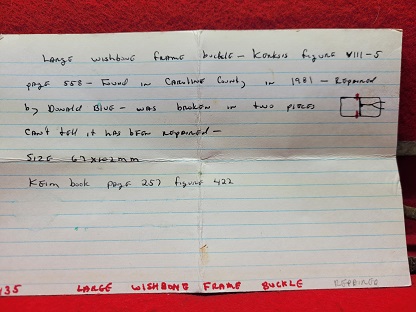 Large wishbone frame buckle - Kerksis figure VIII-5
page 558 - Found in Caroline County in 1981 - Repaired
by Donald Blue - was broken in two pieces
Can't tell it has been repaired -
Size 67x102mm
Keim book page 257 figure 422
435 LARGE WISHBONE FRAME BUCKLE REPAIRED